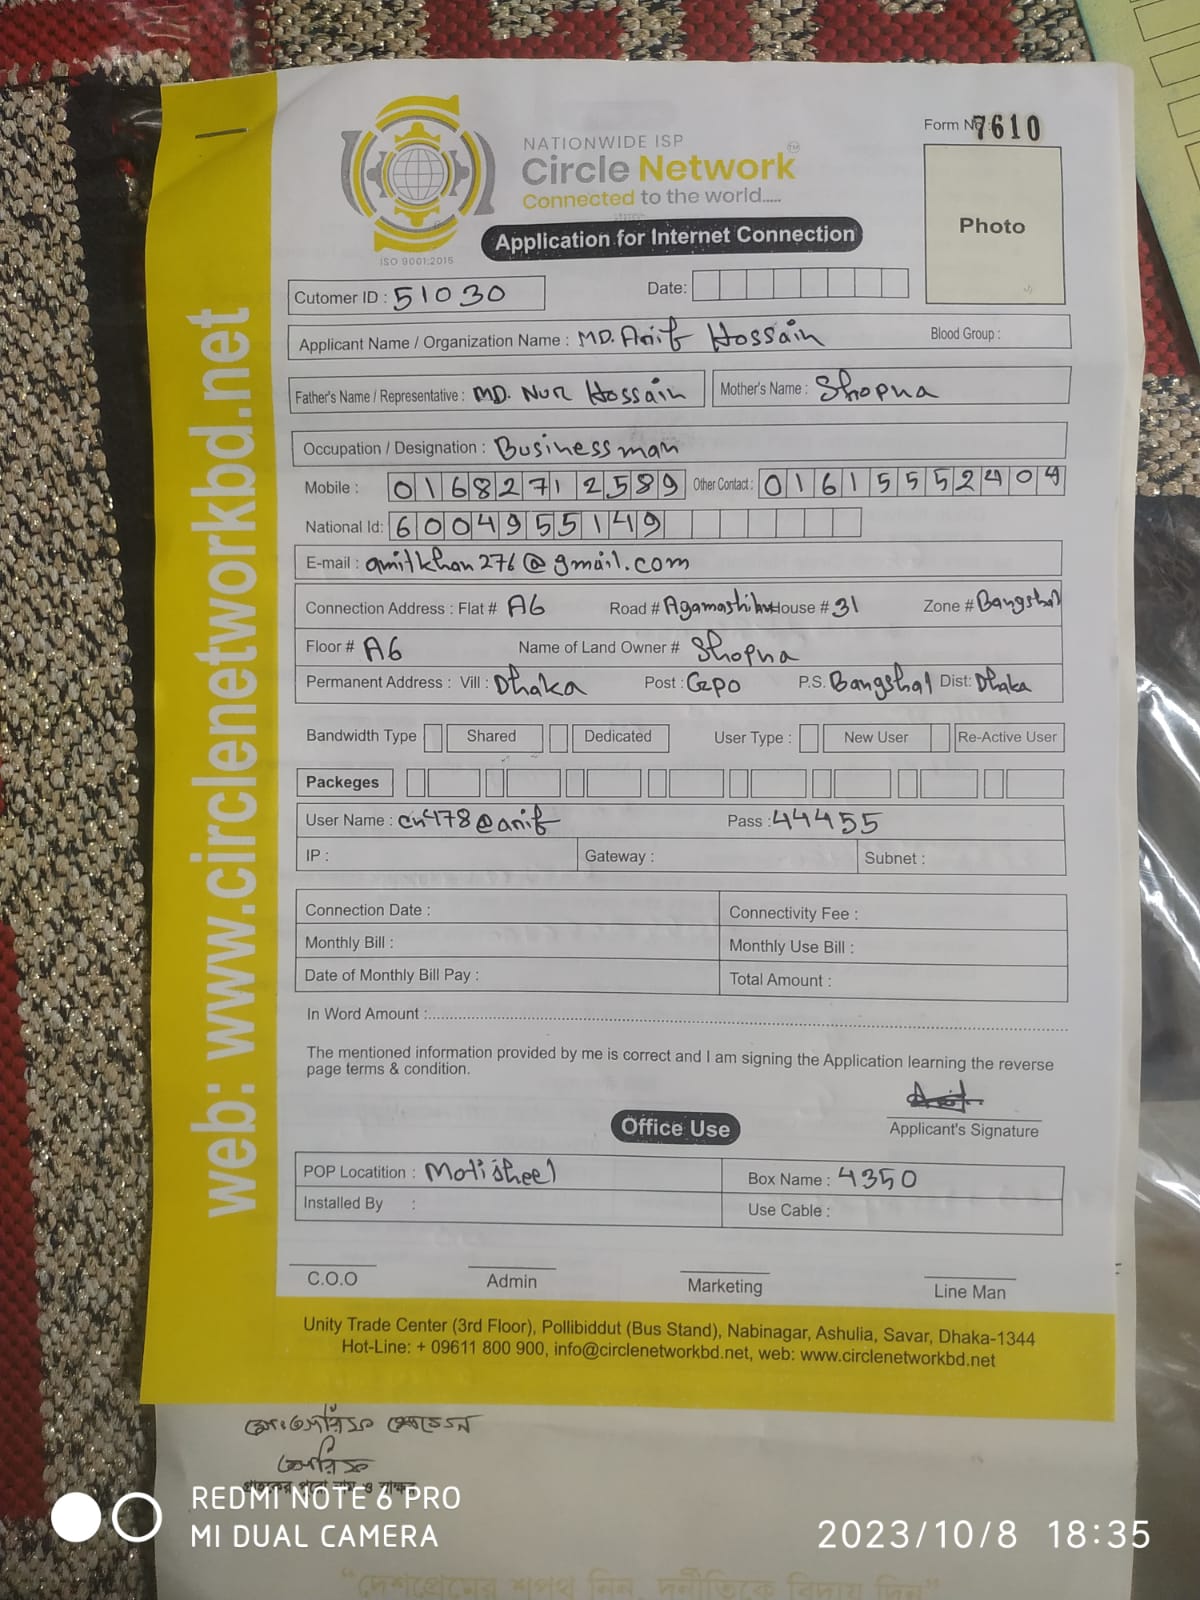 Form No: 7610
NATIONWIDE ISP
Circle Network
TM
Connected to the world.....
ISO 9001:2015
Application for Internet Connection
Photo
Cutomer ID : 51030
Date:
Applicant Name / Organization Name : MD. Arif Hossain
Blood Group :
Father's Name / Representative : MD. NUR Hossain
Mother's Name : Shopna
Occupation / Designation : Business man
Mobile : 01682712589
Other Contact : 01615552404
National Id: 6004955149
E-mail : amitkhan276@gmail.com
Connection Address : Flat # A6 Road # Agamashi House # 31 Zone # Bangshal
Floor # A6 Name of Land Owner # Shopna
Permanent Address : Vill : Dhaka Post : GPO P.S. Bangshal Dist: Dhaka
Bandwidth Type Shared Dedicated User Type : New User Re-Active User
Packeges
User Name : cn478@arif Pass : 44455
IP : Gateway : Subnet :
Connection Date : Connectivity Fee :
Monthly Bill : Monthly Use Bill :
Date of Monthly Bill Pay : Total Amount :
In Word Amount :
The mentioned information provided by me is correct and I am signing the Application learning the reverse
page terms & condition.
Arif
Office Use
Applicant's Signature
POP Locatition : Motisheel Box Name : 4350
Installed By : Use Cable :
C.O.O Admin Marketing Line Man
Unity Trade Center (3rd Floor), Pollibiddut (Bus Stand), Nabinagar, Ashulia, Savar, Dhaka-1344
Hot-Line: + 09611 800 900, info@circlenetworkbd.net, web: www.circlenetworkbd.net
web: www.circlenetworkbd.net
মোঃ আরিফ হোসেন
আরিফ
গ্রাহকের পুরো নাম ও স্বাক্ষর
REDMI NOTE 6 PRO
MI DUAL CAMERA
2023/10/8 18:35
“দেশপ্রেমের শপথ নিন, দুর্নীতিকে বিদায় দিন”